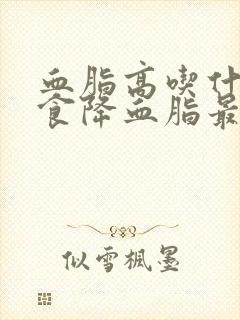 血脂高喫什
食降血脂最
似雪楓墨